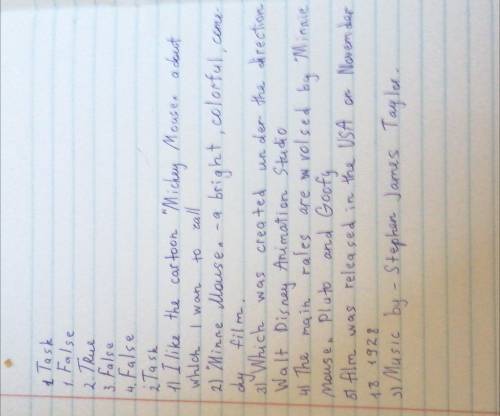 1 Task
1. False
2. True
3. False
4. False
2 Task
1) I like the cartoon "Mickey Mouse" about
which I wan to
2) "Minne Mouse" - a bright, colorful, come-
dy film.
3) Which was created under the direction
Walt Disney Animation Studio
4) The main rales are volsed by "Minnie
Mouse", Pluto and Goofy
5) film was released in the USA on November
18. 1928
3) Music by - Stephan James Taylor.